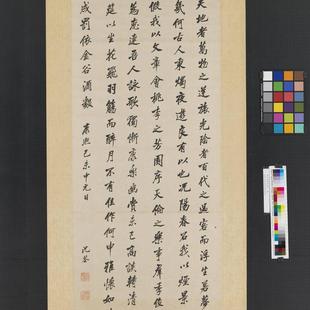 天地者萬物之逆旅光陰者百代之過客而浮生若夢
幾何古人秉燭夜遊良有以也況陽春召我以煙景
假我以文章會桃李之芳園序天倫之樂事羣季俊
為惠連吾人詠歌獨慚康樂幽賞未已高談轉清
筵以坐花飛羽觴而醉月不有佳作何申雅懷如
成罰依金谷酒數 康熙己未中元日
沈荃